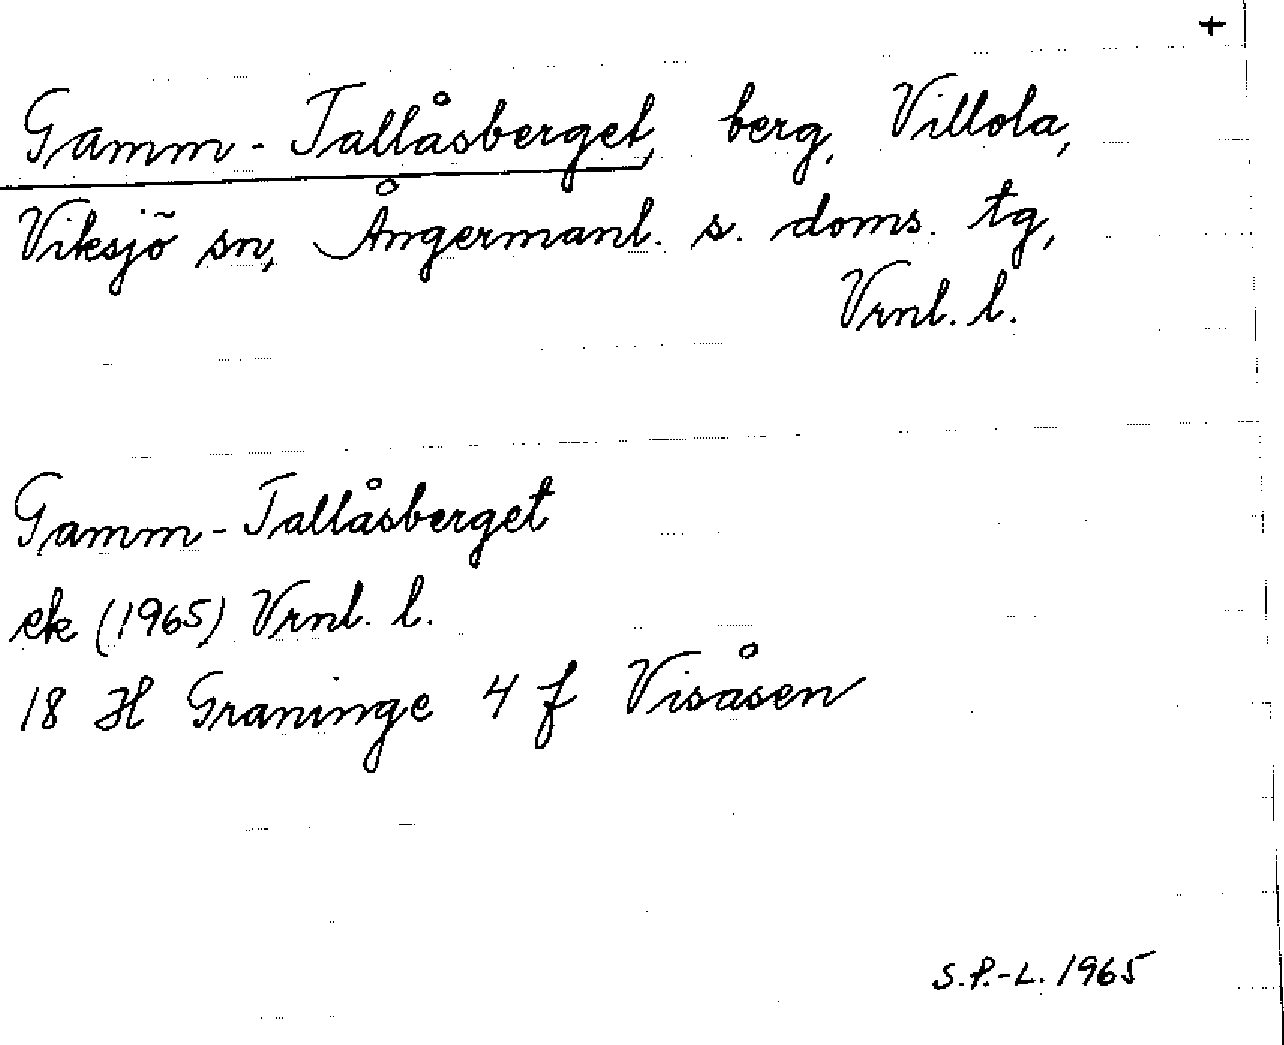 +
Gamm-Tallåsberget, berg, Villola,
Viksjö sn, Ångermanl. s. doms. tg,
Vrnl. l.
Gamm-Tallåsberget
ek (1965) Vrnl. l.
18 H Graninge 4 f Visåsen
S.P.-L. 1965